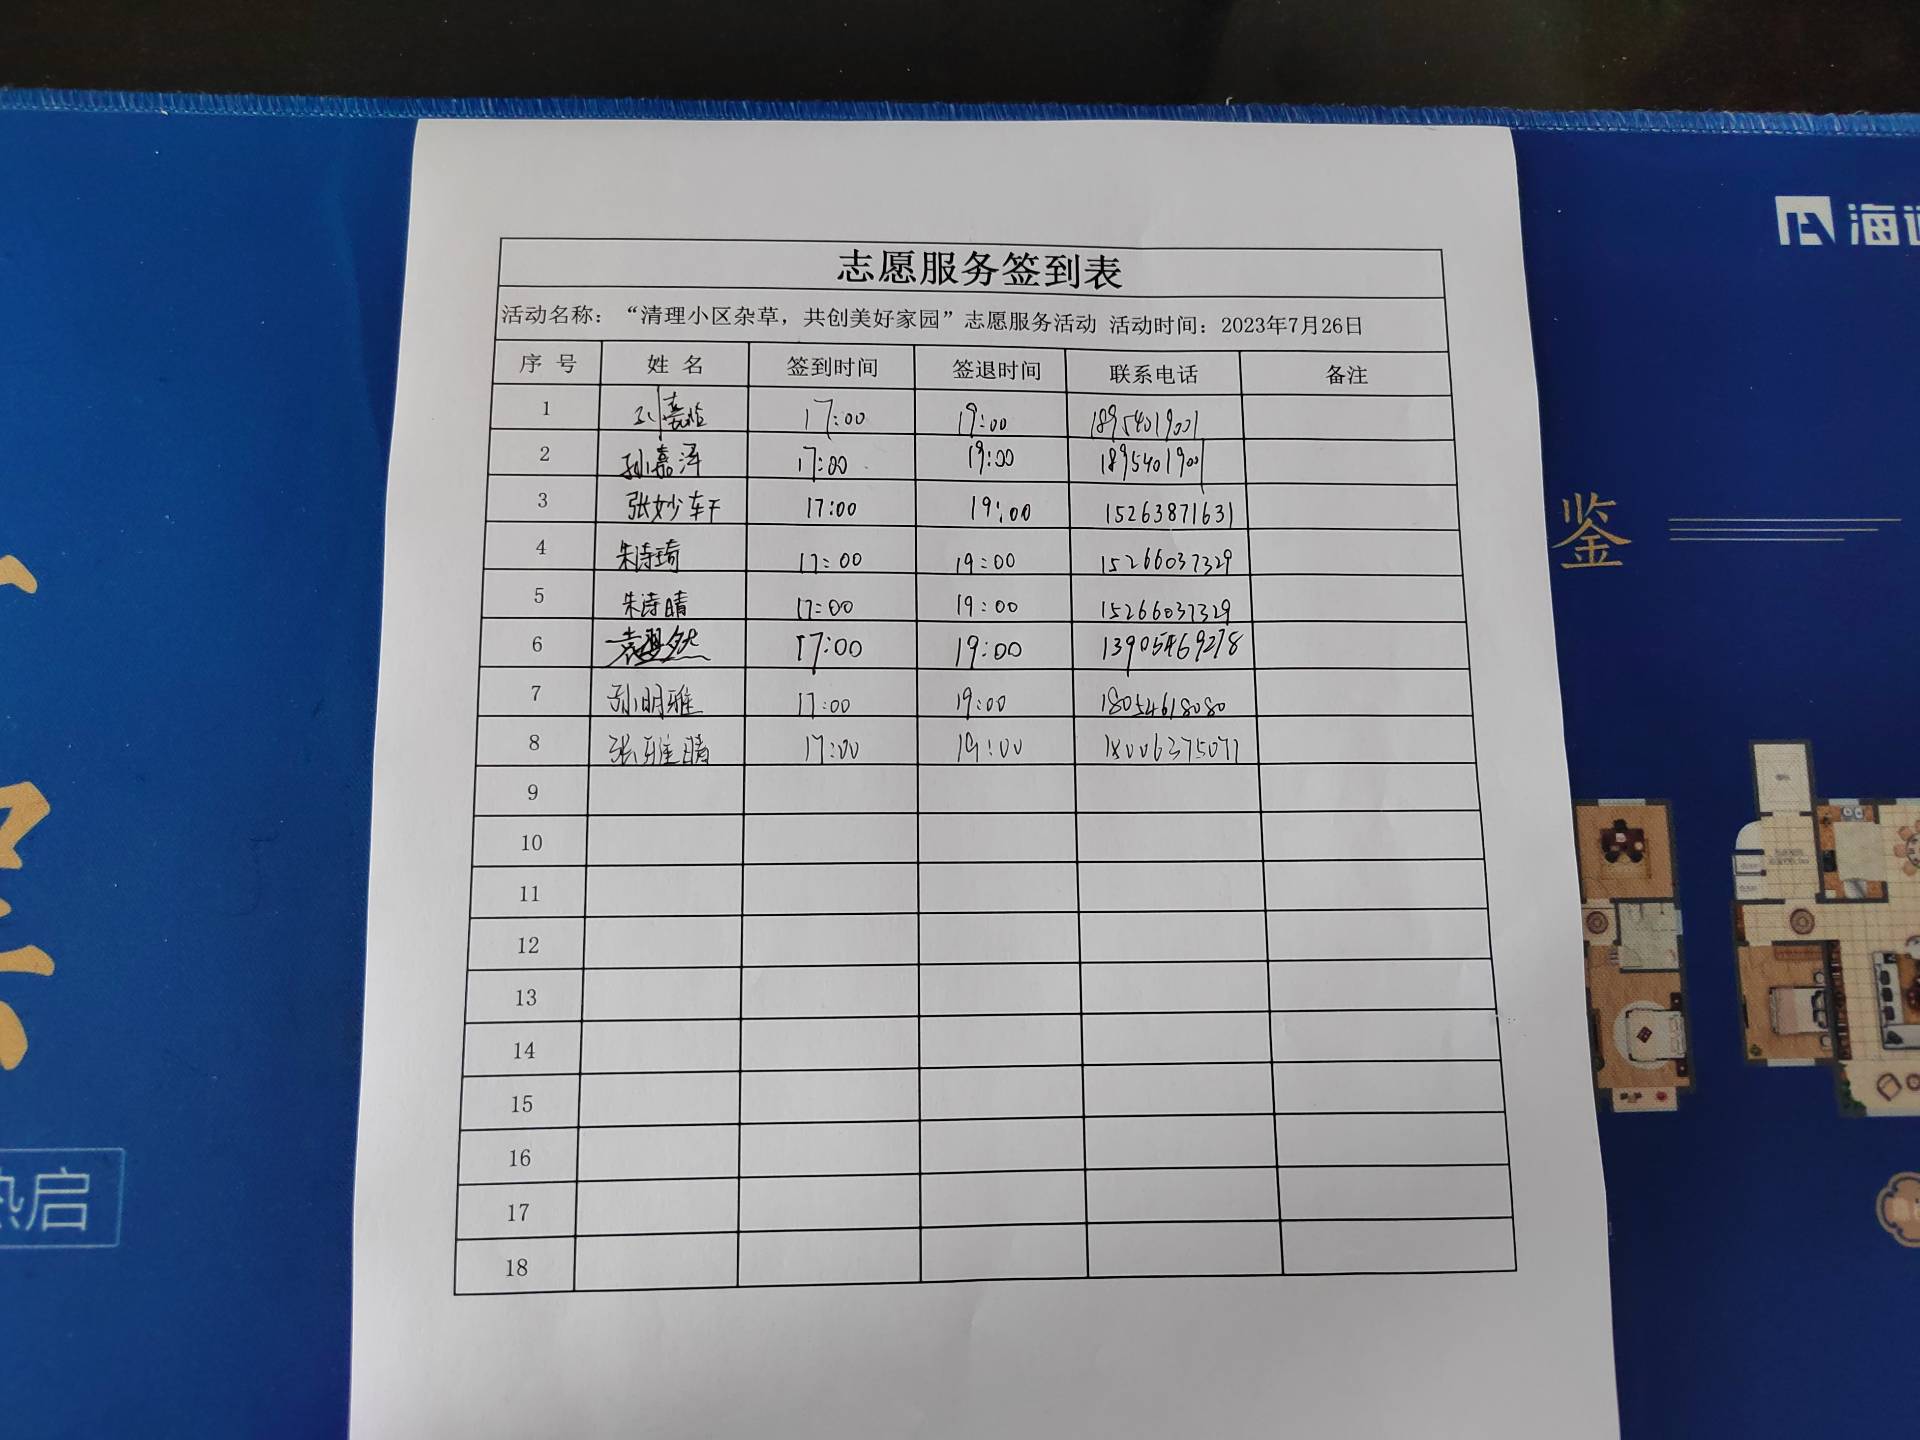 志愿服务签到表
活动名称：“清理小区杂草，共创美好家园”志愿服务活动 活动时间：2023年7月26日
序 号 姓 名 签到时间 签退时间 联系电话 备注
1 17:00 19:00 18954019001
2 孙嘉泽 17:00 19:00 18954019001
3 张妙轩 17:00 19:00 15263871631
4 朱诗琦 17:00 19:00 15266037329
5 朱诗晴 17:00 19:00 15266037329
6 17:00 19:00 13905469278
7 孙明雅 17:00 19:00 18054618080
8 张雅晴 17:00 19:00 18006375071
9
10
11
12
13
14
15
16
17
18
海
鉴
热启